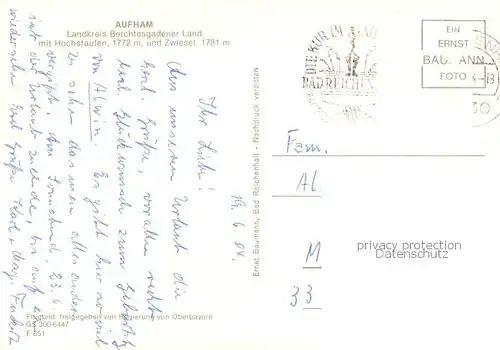 AUFHAM
Landkreis Berchtesgadener Land
mit Hochstaufen, 1772 m, und Zwiesel, 1781 m
19.6.84.
Ihr Lieben!
Aus unserem Urlaub die
herzl. Grüße, vor allem recht
viel Glückwünsche zum Geburtstag
von Alwin. Es gibt hier soviel
zu sehen das man alles andere
vergißt, am Sonnabend, 23.6.
ist der Urlaub zu Ende, bis auf ein
wiedersehn Grüße Karl + Marg.
Flugbild, freigegeben von Regierung von Oberbayern
GS 300-6447
E 851
Ernst Baumann, Bad Reichenhall - Nachdruck verboten
DIE KUR IM
BAD REICHEN
EIN
ERNST
BAUMANN
FOTO
30
Fam.
Al.
M
33
privacy protection
Datenschutz